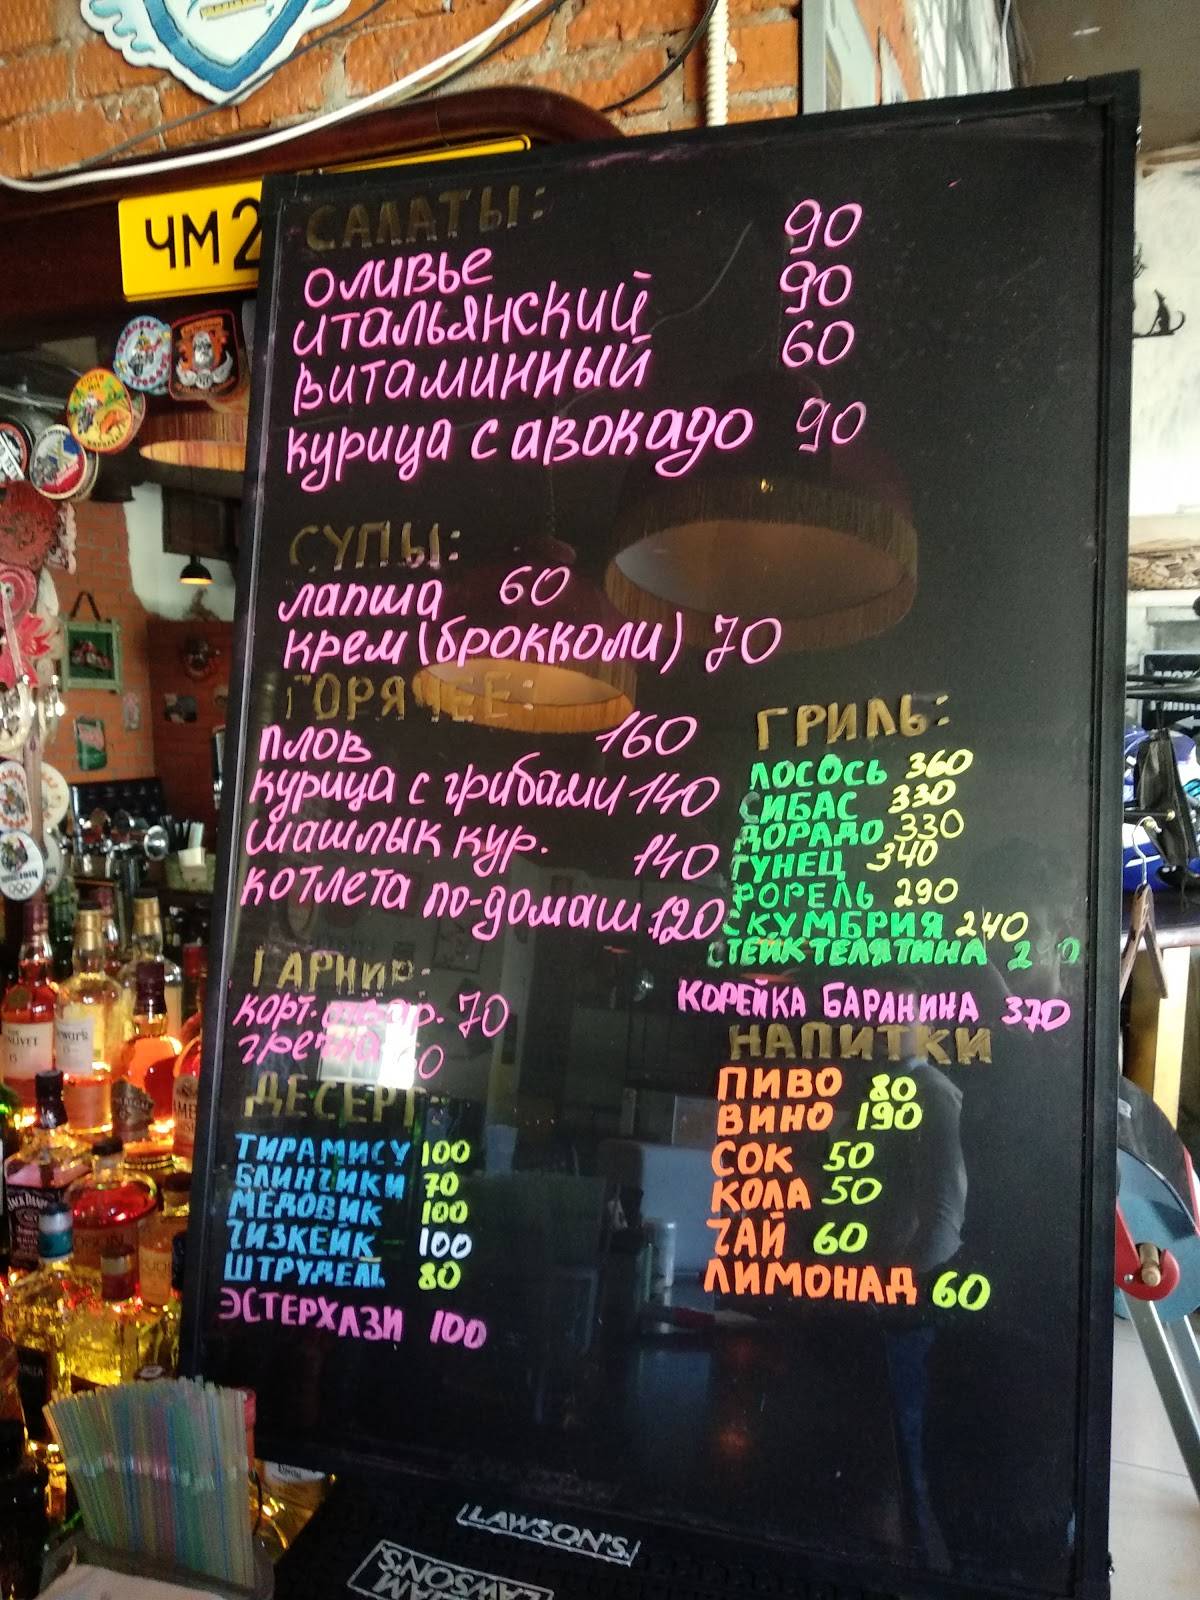 ЧМ 2
САЛАТЫ:
ОЛИВЬЕ 90
ИТАЛЬЯНСКИЙ 90
ВИТАМИННЫЙ 60
КУРИЦА С АВОКАДО 90
СУПЫ:
ЛАПША 60
КРЕМ (БРОККОЛИ) 70
ГОРЯЧЕЕ:
ПЛОВ 160
КУРИЦА С ГРИБАМИ 140
ШАШЛЫК КУР. 140
КОТЛЕТА ПО-ДОМАШ. 120
ГАРНИР:
КАРТ. ОТВАР. 70
ГРЕЧКА
ДЕСЕРТ:
ТИРАМИСУ 100
БЛИНЧИКИ 70
МЕДОВИК 100
ЧИЗКЕЙК 100
ШТРУДЕЛЬ 80
ЭСТЕРХАЗИ 100
ГРИЛЬ:
ЛОСОСЬ 360
СИБАС 330
ДОРАДО 330
ТУНЕЦ 340
ФОРЕЛЬ 290
СКУМБРИЯ 240
СТЕЙК ТЕЛЯТИНА
КОРЕЙКА БАРАНИНА 370
НАПИТКИ
ПИВО 80
ВИНО 190
СОК 50
КОЛА 50
ЧАЙ 60
ЛИМОНАД 60
LAWSON'S
LAWSON'S